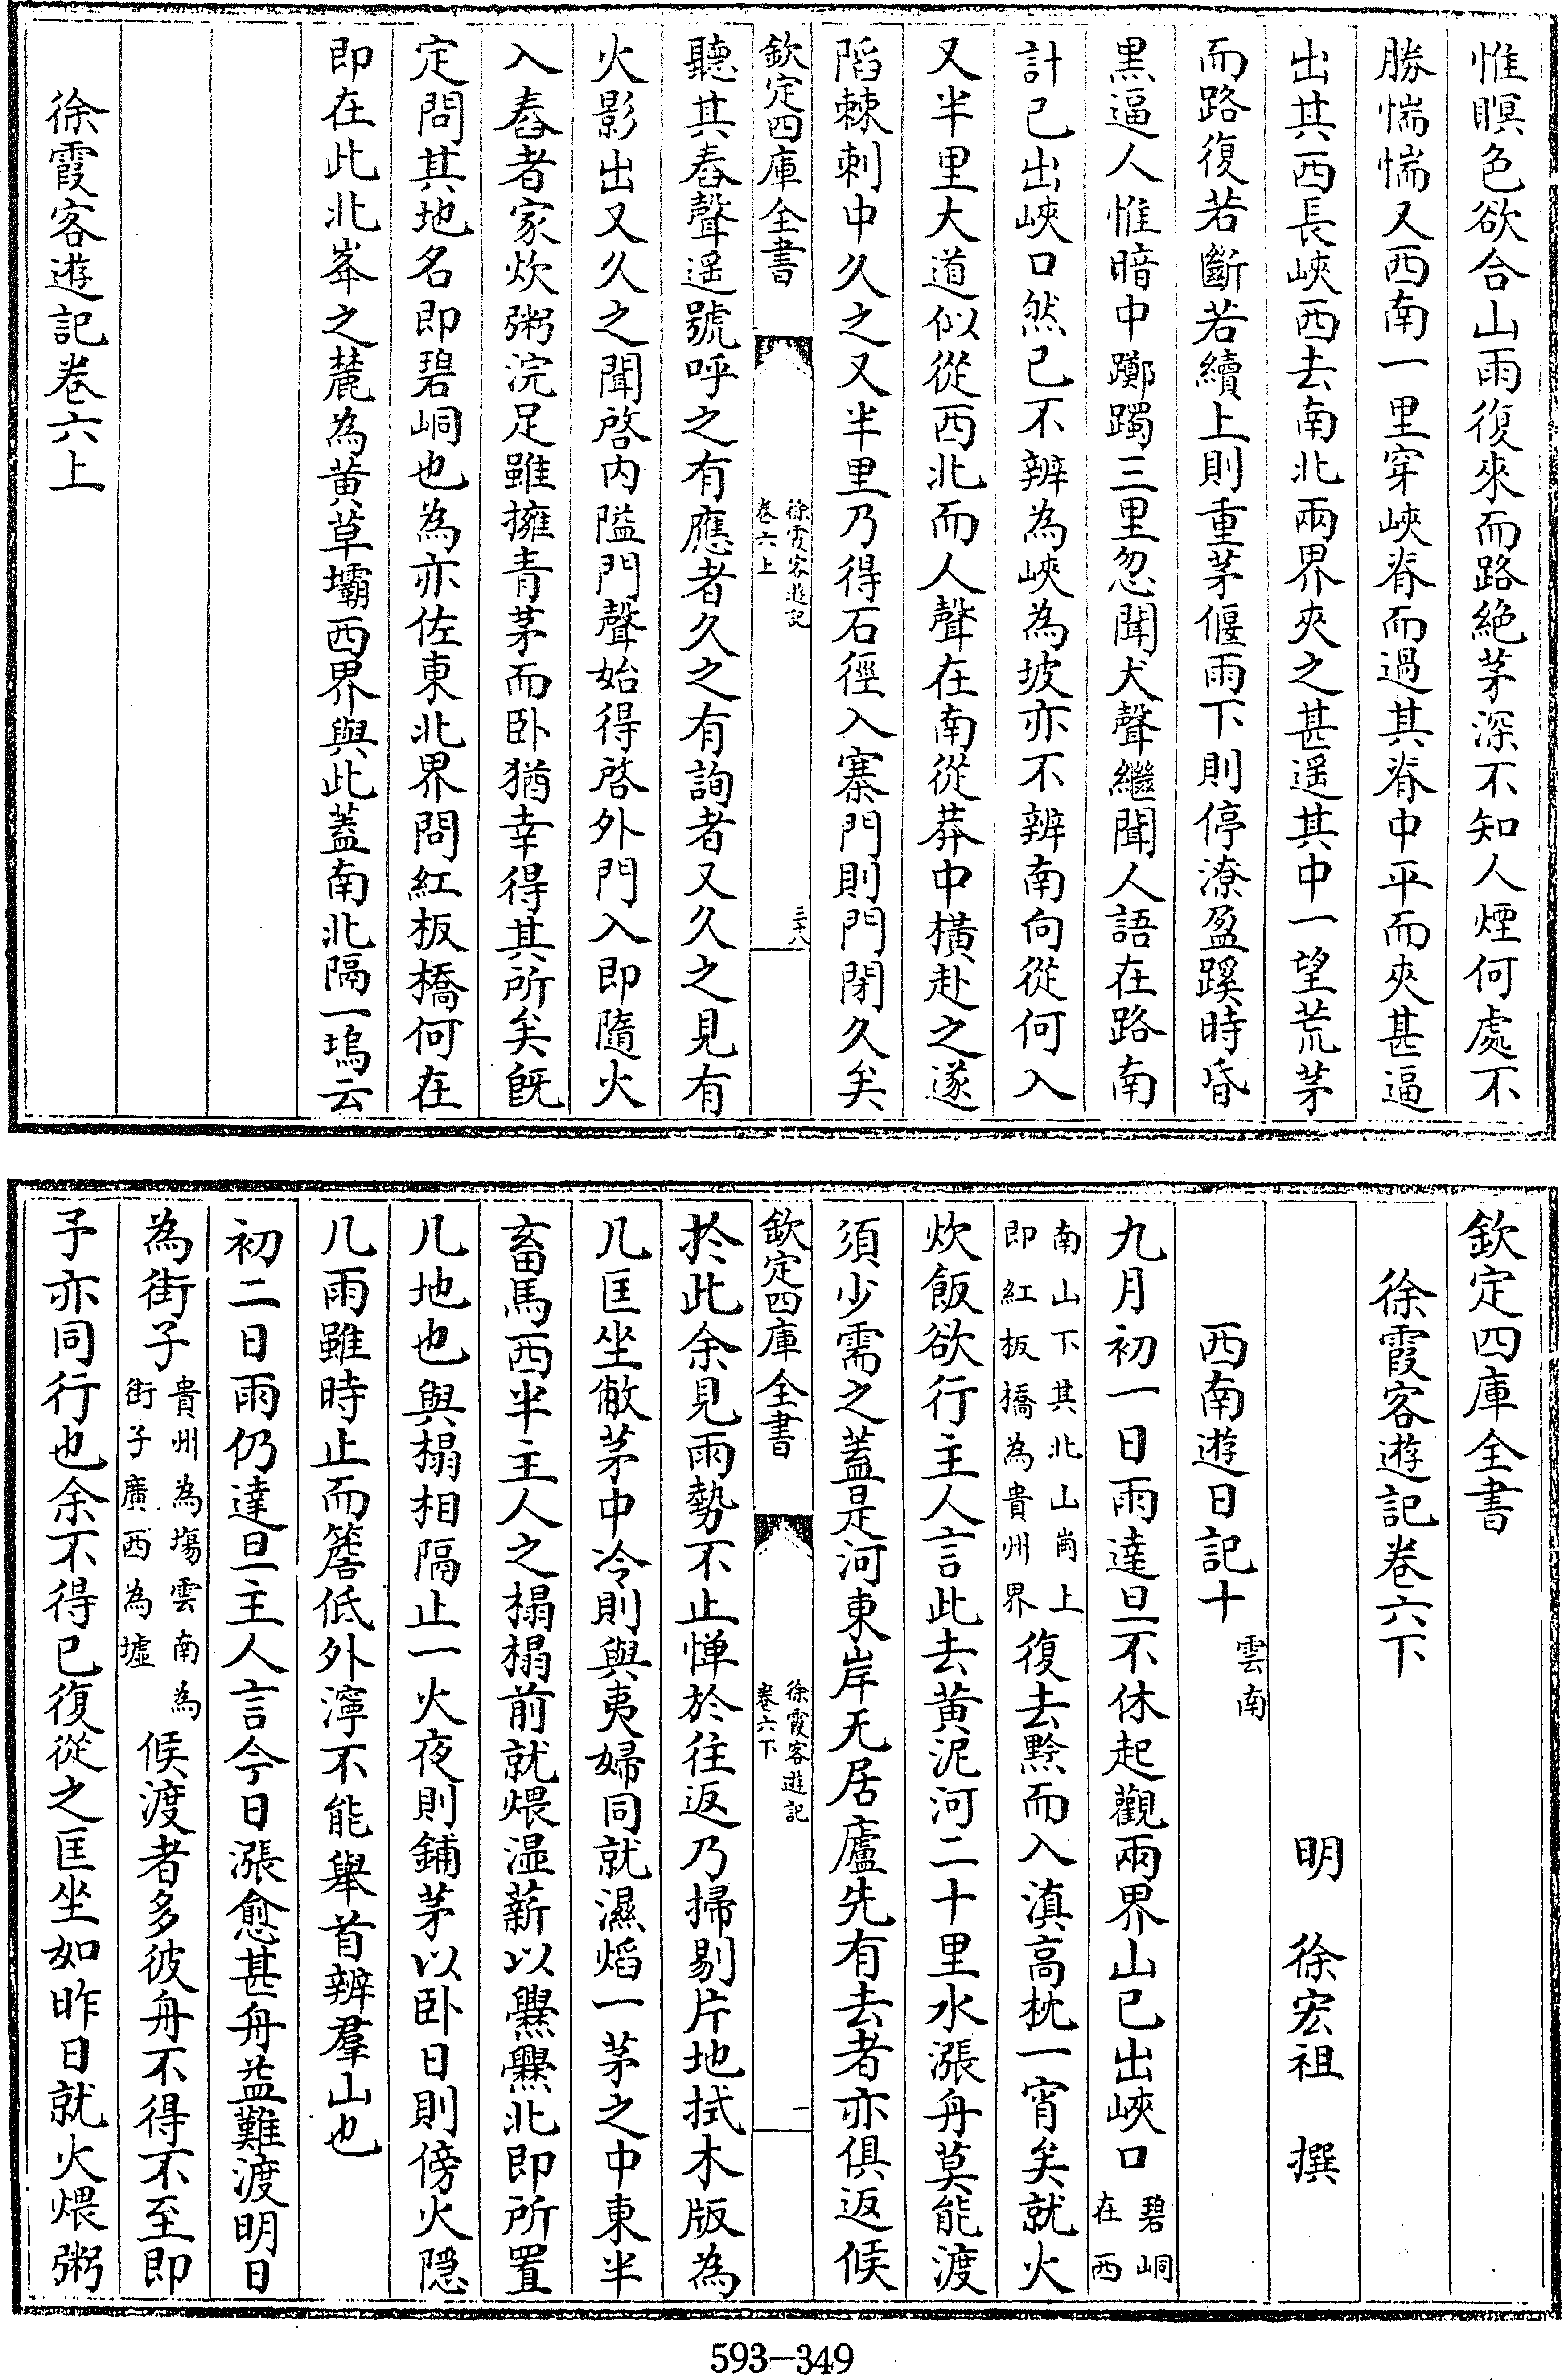 惟瞑色欲合山雨復來而路絶茅深不知人煙何處不
勝惴惴又西南一里穿峽脊而過其脊中平而夾甚逼
出其西長峽西去南北兩界夾之甚遥其中一望荒茅
而路復若斷若續上則重茅偃雨下則停潦盈蹊時昏
黒逼人惟暗中躑躅三里忽聞犬聲繼聞人語在路南
計已出峽口然已不辨為峽為坡亦不辨南向從何入
又半里大道似從西北而人聲在南從莽中橫赴之遂
陷棘刺中久之又半里乃得石徑入寨門則門閉久矣
欽定四庫全書
徐霞客遊記
卷六上
三十八
聽其舂聲遥號呼之有應者久之有詢者又久之見有
火影出又久之聞啓内隘門聲始得啓外門入即隨火
入舂者家炊粥浣足雖擁青茅而卧猶幸得其所矣既
定問其地名即碧峒也為亦佐東北界問紅板橋何在
即在此北峯之麓為黄草壩西界與此蓋南北隔一塢云
徐霞客遊記卷六上
欽定四庫全書
徐霞客遊記卷六下
明 徐宏祖 撰
西南遊日記十雲南
九月初一日雨達旦不休起觀兩界山已出峽口碧峒
在西
南山下其北山崗上
即紅板橋為貴州界復去黔而入滇高枕一宵矣就火
炊飯欲行主人言此去黄泥河二十里水漲舟莫能渡
須少需之蓋是河東岸无居廬先有去者亦俱返候
欽定四庫全書
徐霞客遊記
卷六下
一
於此余見雨勢不止憚於往返乃掃剔片地拭木版為
几匡坐敝茅中冷則與夷婦同就濕熖一茅之中東半
畜馬西半主人之榻榻前就煨湿薪以爨爨北即所置
几地也與榻相隔止一火夜則鋪茅以卧日則傍火隐
几雨雖時止而簷低外濘不能舉首辨羣山也
初二日雨仍達旦主人言今日漲愈甚舟益難渡明日
為街子貴州為塲雲南為
街子廣西為墟候渡者多彼舟不得不至即
予亦同行也余不得已復從之匡坐如昨日就火煨粥
593-349